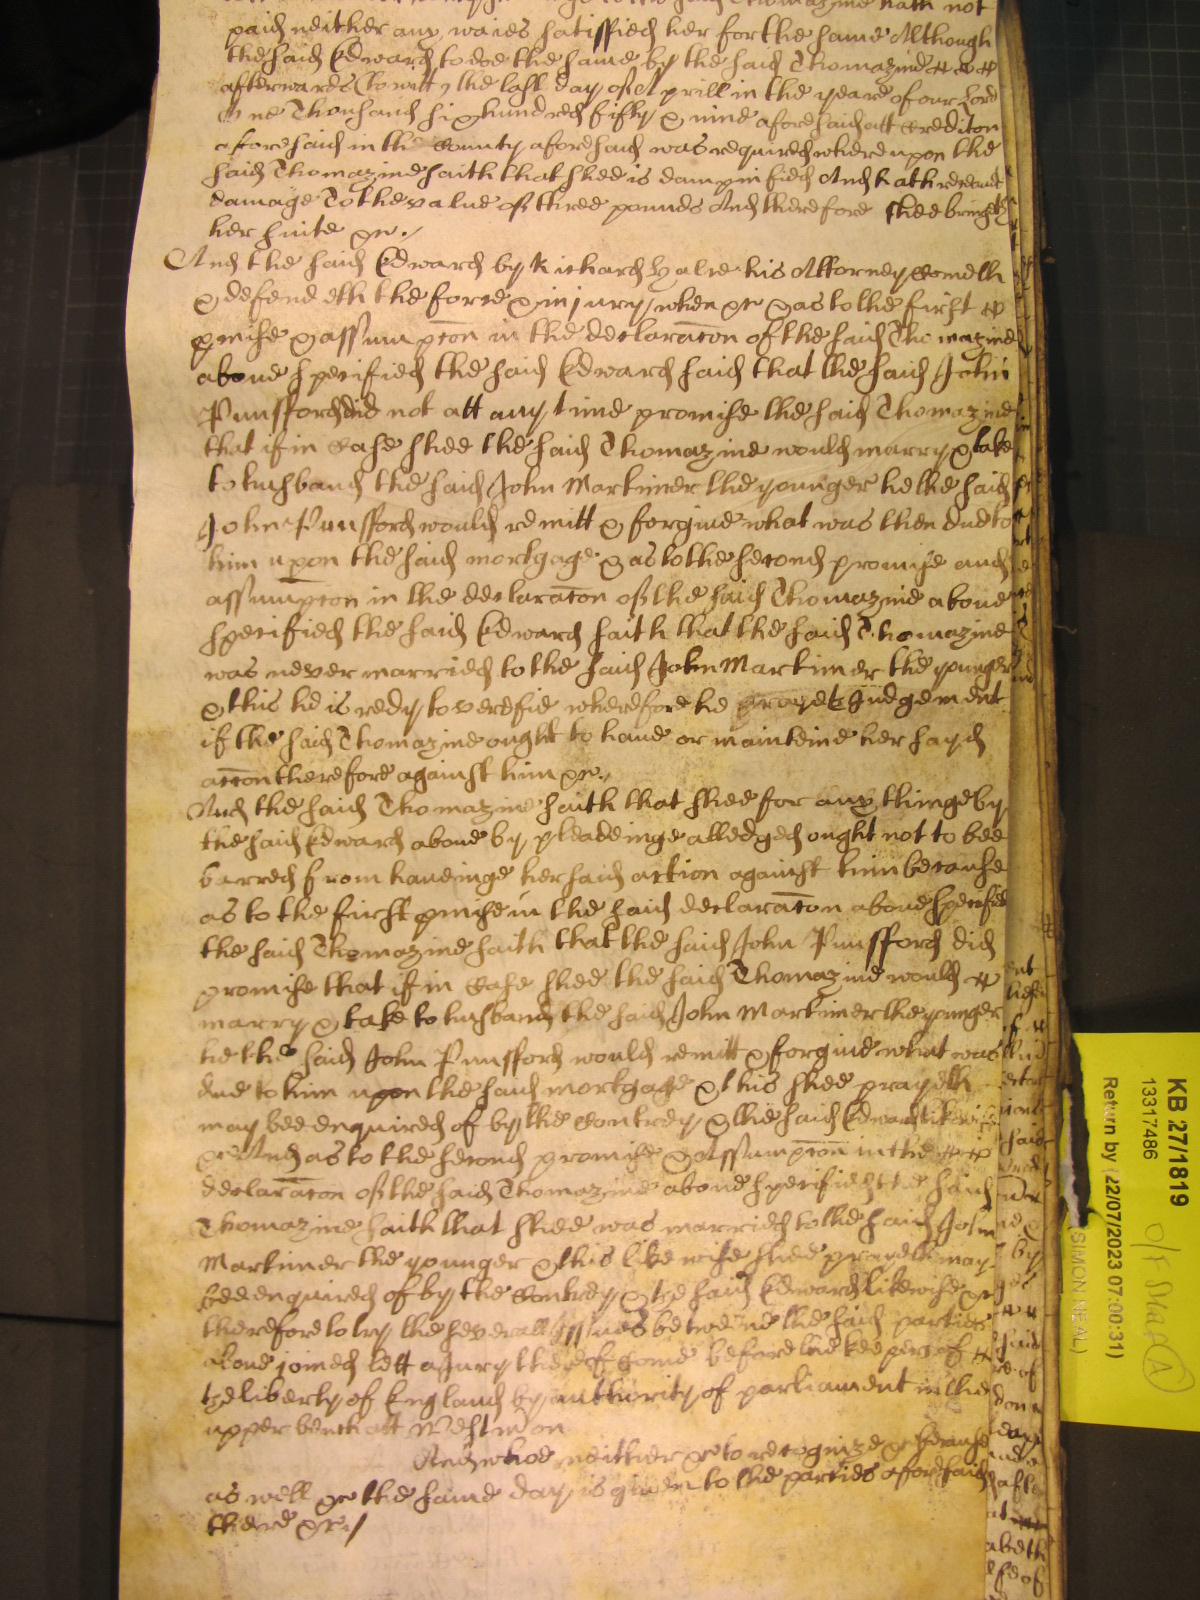 said Thomazine hath not
paid neither any waies satisfied her for the same Although
the said Edward to doe the same by the said Thomazine
afterwards (to witt) the last day of Aprill in the yeare of our Lord
One Thousand six hundred fifty & nine aforesaid att Crediton
aforesaid in the County aforesaid was required whereupon the
said Thomazine saith that shee is dampnified And hath
damage To the value of three pounds And therefore shee bringeth
her suite &c.
And the said Edward by Richard Halse his Attorney Cometh
& defendeth the force & injury when &c & as to the first
pmise & assumpcon in the declaracon of the said Thomazine
aboue specified the said Edward said that the said John
Punsford did not att any time promise the said Thomazine
that if in Case shee the said Thomazine would marry & take
to husband the said John Martimer the younger he the said
John Punsford would remitt & forgiue what was then due to
him upon the said mortgage & as to the second promise and
assumpcon in the declaracon of the said Thomazine aboue
specified the said Edward saith that the said Thomazine
was never married to the said John Martimer the younger
& this he is redy to verefie wherefore he prayeth Judgement
if the said Thomazine ought to haue or mainteine her sayd
accon therefore against him &c.
And the said Thomazine saith that shee for any thinge by
the said Edward aboue by pleadeinge alledged ought not to bee
barred from haueinge her said action against him because
as to the first pmise in the said declaracon aboue specified
the said Thomazine saith that the said John Punsford did
promise that if in Case shee the said Thomazine would
marry & take to husband the said John Martimer the younger
he the said John Punsford would remitt & forgiue what was
due to him upon the said mortgage & this shee prayeth
may bee enquired of by the Contrey & the said Edward likewise
&c And as to the second promise & Assumpcon in the
declaracon of the said Thomazine aboue specified the said
Thomazine saith that shee was married to the said John
Martimer the younger & this likewise shee prayeth may
bee enquired of by the Contrey & the said Edward likewise &c
therefore to try the severall Issues betweene the said parties
aboue joined lett a Jury thereof Come before the keepers of
the liberty of England by authority of parliament in the
upper bench att Westm on
And whoe neither &c to recognize &c because
as well &c the same day is giuen to the parties aforesaid
there &c
KB 27/1819
13317486
Return by (22/07/2023 07:00:31)
(SIMON NEAL)
A